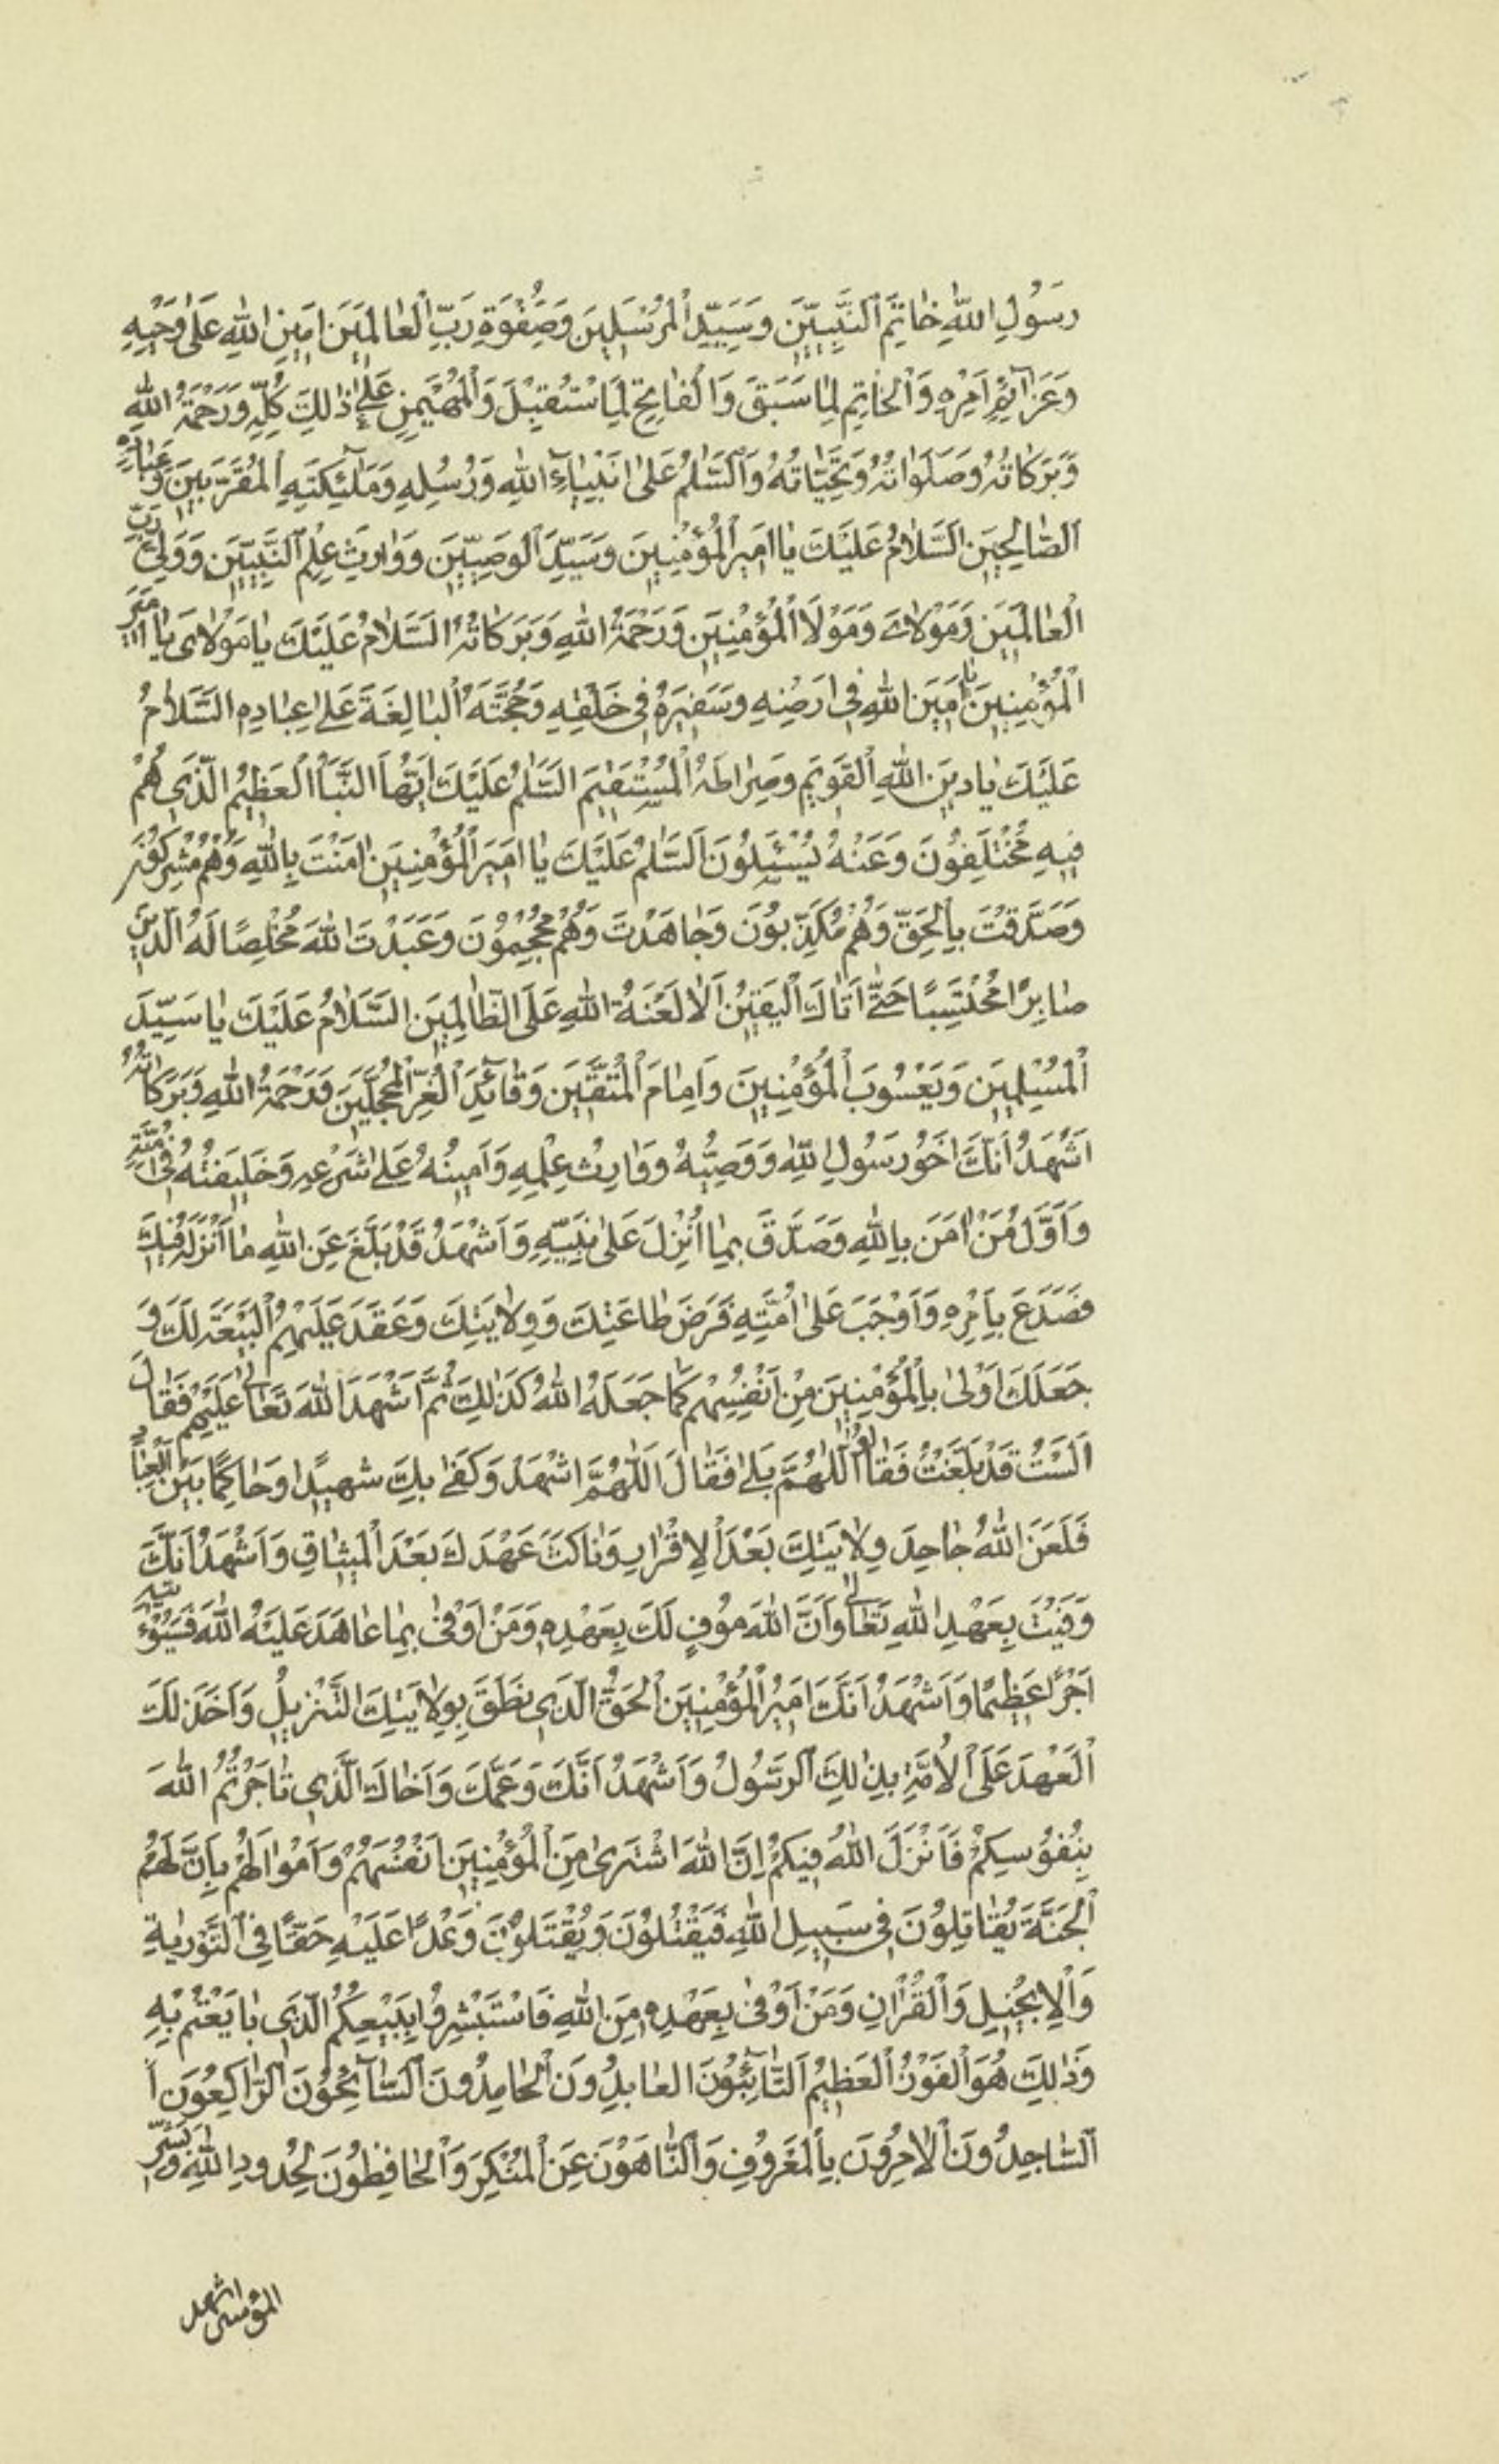 رَسُولِ اللهِ خاتِمَ النَّبِيّينَ وَسَيِّدِ المُرْسَلِينَ وَصَِفْوَةِ رَبِّ العالَمِينَ امِينِ اللهِ عَلى وَحْيِهِ
وَعَزآئِمِ اَمْرِهِ وَالْخاتِمِ لِما سَبَقَ وَالْفاتِحِ لِمَا اسْتُقْبِلَ وَالْمُهَيْمِنِ عَلى ذلِكَ كُلِّهِ وَرَحْمَةُ اللهِ
وَبَرَكاتُهُ وَصَلَواتُهُ وَتَحِيّاتُهُ وَالسَّلمُ عَلى انْبِيآءِ اللهِ وَرُسُلِهِ وَمَلآئِكَتِهِ المُقَرَّبِينَ وَعِبادِهِ
الصّالِحِينَ السَّلامُ عَلَيْكَ يا امِيرَ المُؤْمِنِينَ وَسَيِّدَ الوَصِيّينَ وَوارِثَ عِلْمِ النَّبِيّينَ وَوَلِيَّ رَبِّ
العالَمِينَ وَمَوْلايَ وَمَوْلَا المُؤْمِنِينَ وَرَحْمَةُ اللهِ وَبَرَكاتُهُ السَّلامُ عَلَيْكَ يا مَوْلايَ يا امِيرَ
الْمُؤْمِنِينَ يا امِينَ اللهِ فِي ارْضِهِ وَسَفِيرَهُ فِي خَلْقِهِ وَحُجَّتَهُ البالِغَةَ عَلى عِبادِهِ السَّلامُ
عَلَيْكَ يا دِينَ اللهِ القَوِيمِ وَصِراطَهُ المُسْتَقِيمَ السَّلمُ عَلَيْكَ ايُّهَا النَّبَأُ العَظِيمُ الَّذِي هُمْ
فِيهِ مُخْتَلِفُونَ وَعَنْهُ يُسْئَلُونَ السَّلمُ عَلَيْكَ يا امِيرَ الْمُؤْمِنِينَ امَنْتَ بِاللهِ وَهُمْ مُشْرِكُونَ
وَصَدَّقْتَ بِالْحَقِّ وَهُمْ مُكَذِّبُونَ وَجاهَدْتَ وَهُمْ مُحْجِمُونَ وَعَبَدْتَ اللهَ مُخْلِصًا لَهُ الدِّينَ
صابِرًا مُحْتَسِبًا حَتّى اَتاكَ الْيَقِينُ اَلا لَعْنَةُ اللهِ عَلَى الظّالِمِينَ السَّلامُ عَلَيْكَ يا سَيِّدَ
الْمُسْلِمِينَ وَيَعْسُوبَ الْمُؤْمِنِينَ وَاِمامَ الْمُتَّقِينَ وَقآئِدَ الْغُرِّ الْمُحَجَّلِينَ وَرَحْمَةُ اللهِ وَبَرَكاتُهُ
اَشْهَدُ اَنَّكَ اَخُو رَسُولِ اللهِ وَوَصِيُّهُ وَوارِثُ عِلْمِهِ وَاَمِينُهُ عَلى شَرْعِهِ وَخَلِيفَتُهُ فِي اُمَّتِهِ
وَاَوَّلُ مَنْ امَنَ بِاللهِ وَصَدَّقَ بِما اُنْزِلَ عَلى نَبِيِّهِ وَاَشْهَدُ قَدْ بَلَّغَ عَنِ اللهِ ما اَنْزَلَهُ فِيكَ
فَصَدَعَ بِاَمْرِهِ وَاَوْجَبَ عَلى اُمَّتِهِ فَرَضَ طاعَتِكَ وَوِلايَتِكَ وَعَقَدَ عَلَيْهِمُ الْبَيْعَةَ لَكَ وَ
جَعَلَكَ اَوْلى بِالْمُؤْمِنِينَ مِنْ اَنْفُسِهِمْ كَما جَعَلَهُ اللهُ كَذلِكَ ثُمَّ اَشْهَدَ اللهَ تَعالى عَلَيْهِمْ فَقالَ
اَلَسْتُ قَدْ بَلَّغْتُ فَقالُوا اللّهُمَّ بَلى فَقالَ اَللّهُمَّ اشْهَدْ وَكَفى بِكَ شَهِيدًا وَحاكِمًا بَيْنَ الْعِبادِ
فَلَعَنَ اللهُ جاحِدَ وِلايَتِكَ بَعْدَ الاِقْرارِ وَناكِثَ عَهْدِكَ بَعْدَ الْمِيثاقِ وَاَشْهَدُ اَنَّكَ
وَفَيْتَ بِعَهْدِ اللهِ تَعالى وَاَنَّ اللهَ مُوفٍ لَكَ بِعَهْدِهِ وَمَنْ اَوْفى بِما عاهَدَ عَلَيْهُ اللهَ فَسَيُؤْتِيهِ
اَجْرًا عَظِيمًا وَاَشْهَدُ اَنَّكَ اَمِيرُ الْمُؤْمِنِينَ الْحَقُّ الَّذِي نَطَقَ بِوِلايَتِكَ التَّنْزِيلُ وَاَخَذَ لَكَ
الْعَهْدَ عَلَى الاُمَّةِ بِذلِكَ الرَّسُولُ وَاَشْهَدُ اَنَّكَ وَعَمَّكَ وَاَخاكَ الَّذِي تاجَرْتُمُ اللهَ
بِنُفُوسِكُمْ فَاَنْزَلَ اللهُ فِيكُمْ اِنَّ اللهَ اشْتَرى مِنَ الْمُؤْمِنِينَ اَنْفُسَهُمْ وَاَمْوالَهُمْ بِاَنَّ لَهُمُ
الْجَنَّةَ يُقاتِلُونَ فِي سَبِيلِ اللهِ فَيَقْتُلُونَ وَيُقْتَلُونَ وَعْدًا عَلَيْهِ حَقًّا فِي التَّوْريةِ
وَالْاِنْجِيلِ وَالْقُرْانِ وَمَنْ اَوْفى بِعَهْدِهِ مِنَ اللهِ فَاسْتَبْشِرُوا بِبَيْعِكُمُ الَّذِي بايَعْتُمْ بِهِ
وَذلِكَ هُوَ الْفَوْزُ الْعَظِيمُ اَلتّآئِبُونَ العابِدُونَ الْحامِدُونَ السّآئِحُونَ الرّاكِعُونَ ا
السّاجِدُونَ الْامِرُونَ بِالْمَعْرُوفِ وَالنّاهَوْنَ عَنِ الْمُنْكَرِ وَالْحافِظُونَ لِحُدُودِ اللهِ وَبَشِّرِ
المؤمنين اشهد